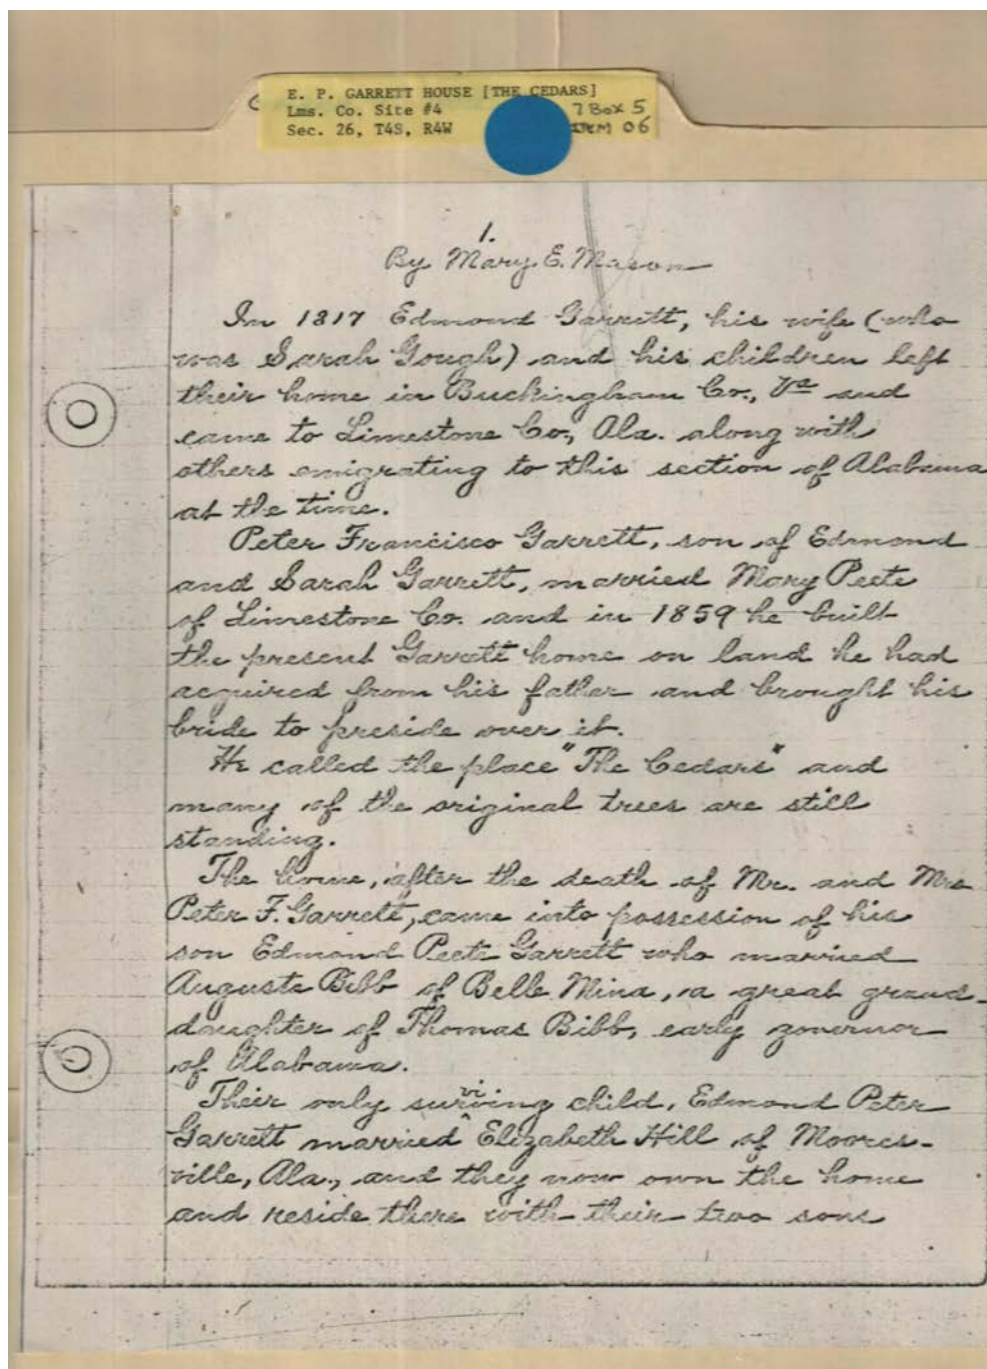 E. P. GARRETT HOUSE [THE CEDARS]
Lms. Co. Site #4 7 Box 5
Sec. 26, T4S, R4W ITEM 06
1.
By Mary E. Mason
In 1817 Edmond Garrett, his wife (who
was Sarah Gough) and his children left
their home in Buckingham Co., Va and
came to Limestone Co., Ala. along with
others emigrating to this section of Alabama
at the time.
Peter Francisco Garrett, son of Edmond
and Sarah Garrett, married Mary Peete
of Limestone Co. and in 1859 he built
the present Garrett home on land he had
acquired from his father and brought his
bride to preside over it.
He called the place "The Cedars" and
many of the original trees are still
standing.
The home, after the death of Mr. and Mrs
Peter F. Garrett, came into possession of his
son Edmond Peete Garrett who married
Augusta Bibb of Belle Mina, a great grand-
daughter of Thomas Bibb, early governor
of Alabama.
Their only surviving child, Edmond Peter
Garrett married Elizabeth Hill of Moores-
ville, Ala., and they now own the home
and reside there with their two sons